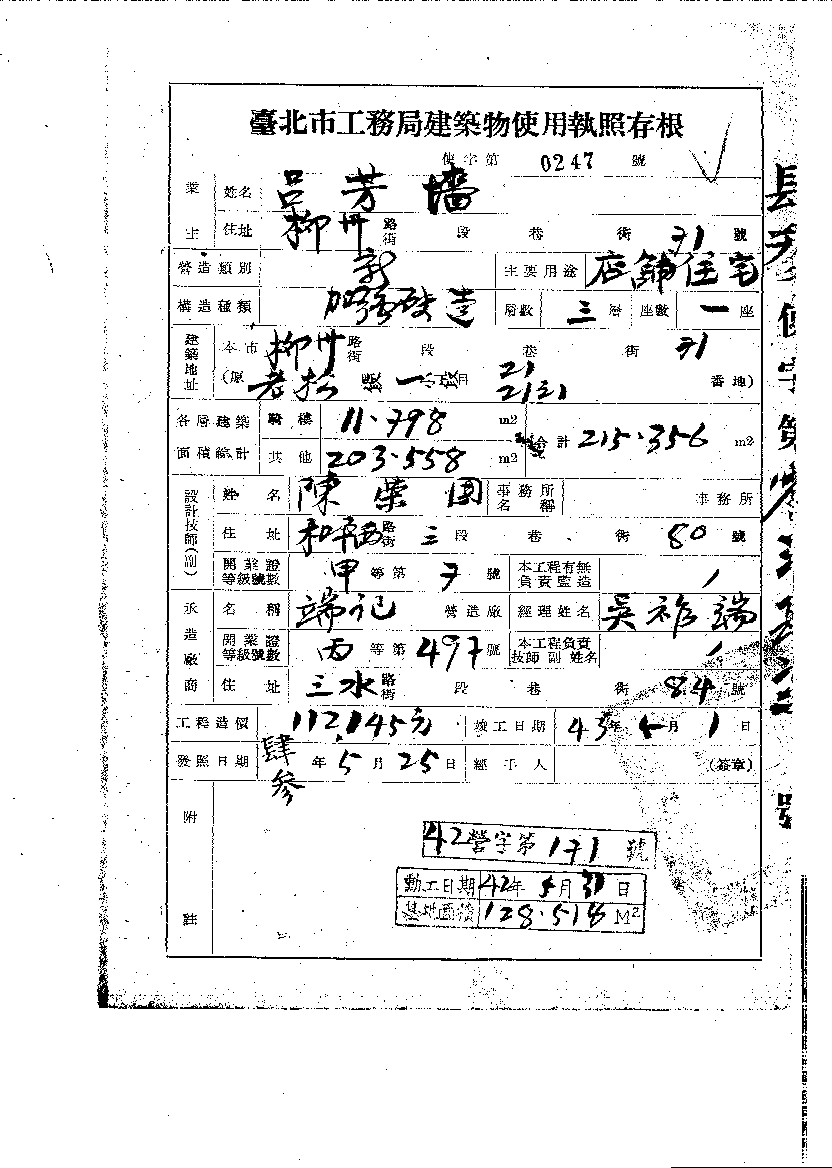 臺北市工務局建築物使用執照存根
使字第 0247 號
業主 姓名 呂芳墻
住址 柳州 路街 段 巷 街 71 號
營造類別 新 主要用途 店舖住宅
構造種類 加強磚造 層數 三層 座數 一座
建築地址 本市 柳州 路街 段 巷 街 71
(原 老松 段一 21 番地)
各層建築面積總計 騎樓 11.798 m2 合計 215.356 m2
其他 203.558 m2
設計技師(副) 姓名 陳榮周 事務所名稱 事務所
住址 路街 三段 巷 街 80 號
開業證等級號數 甲等第 7 號 本工程有無負責監造
承造廠商 名稱 端記 營造廠 經理姓名 吳裕端
開業證等級號數 丙等第 497 號 本工程負責技師副姓名
住址 三水 路街 段 巷 街 84 號
工程造價 112,145元 竣工日期 43年 5月 1日
發照日期 肆參年 5月 25日 經手人 (簽章)
附註
42營字第 171 號
動工日期 42年 5月 31日
基地面積 128.518 M2